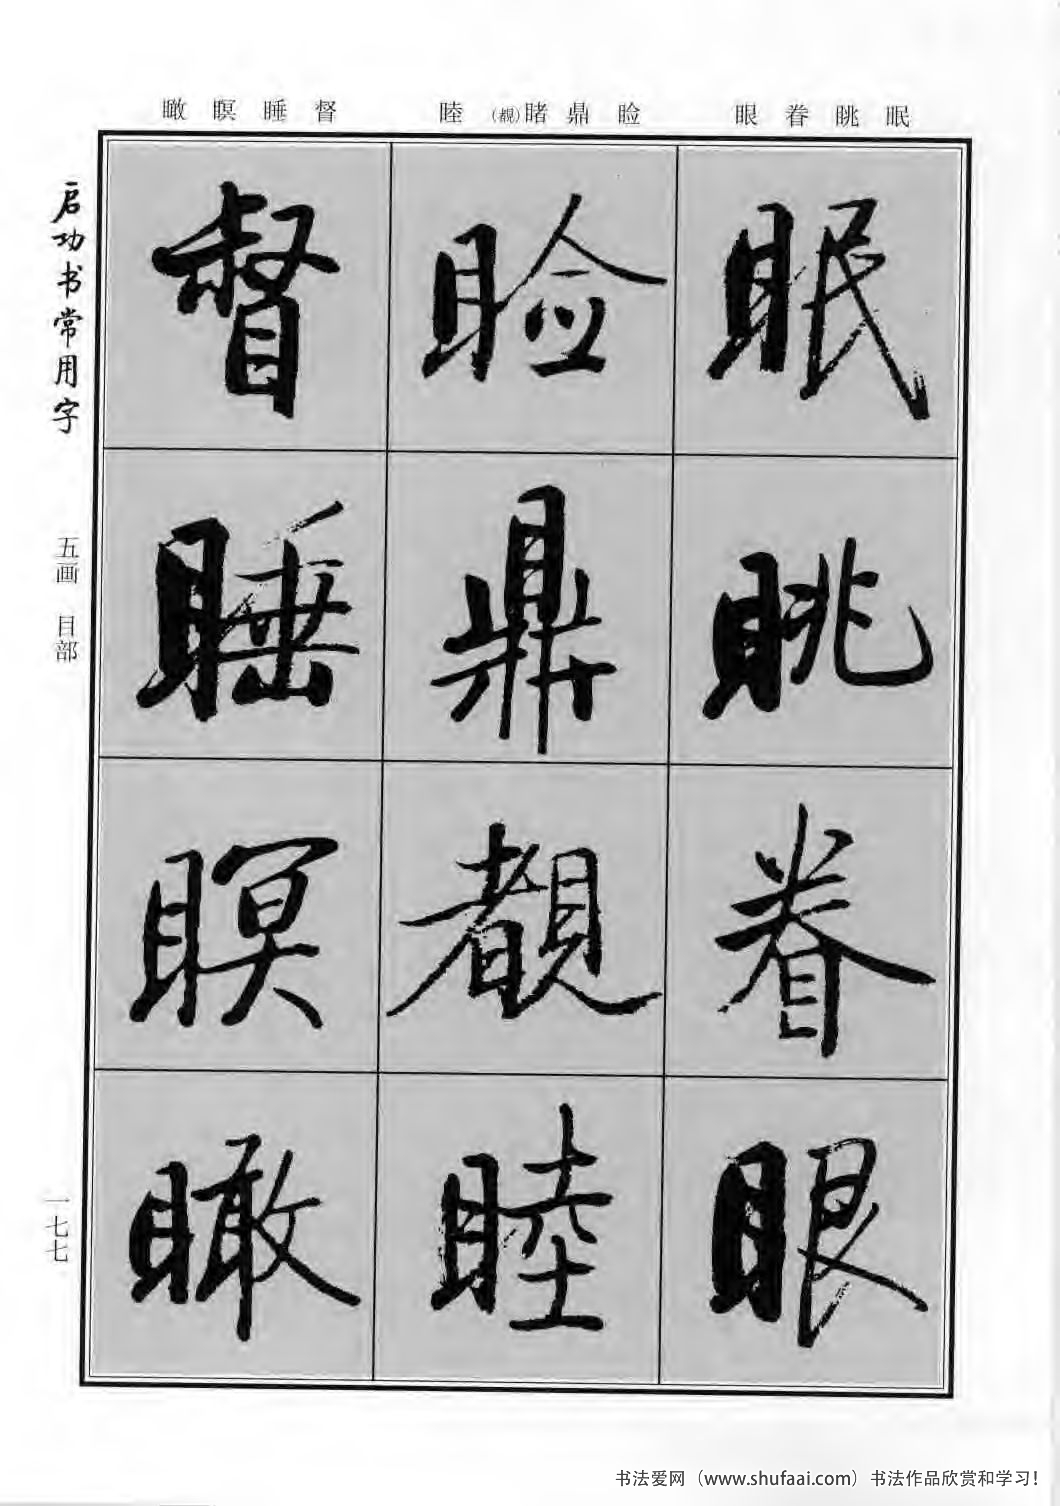 瞰 瞑 睡 督
睦 （覩）睹 鼎 睑
眼 眷 眺 眠
启功书常用字
五画 目部
一七七
眠
眺
眷
眼
睑
鼎
覩
睦
督
睡
瞑
瞰
书法爱网（www.shufaai.com）书法作品欣赏和学习！